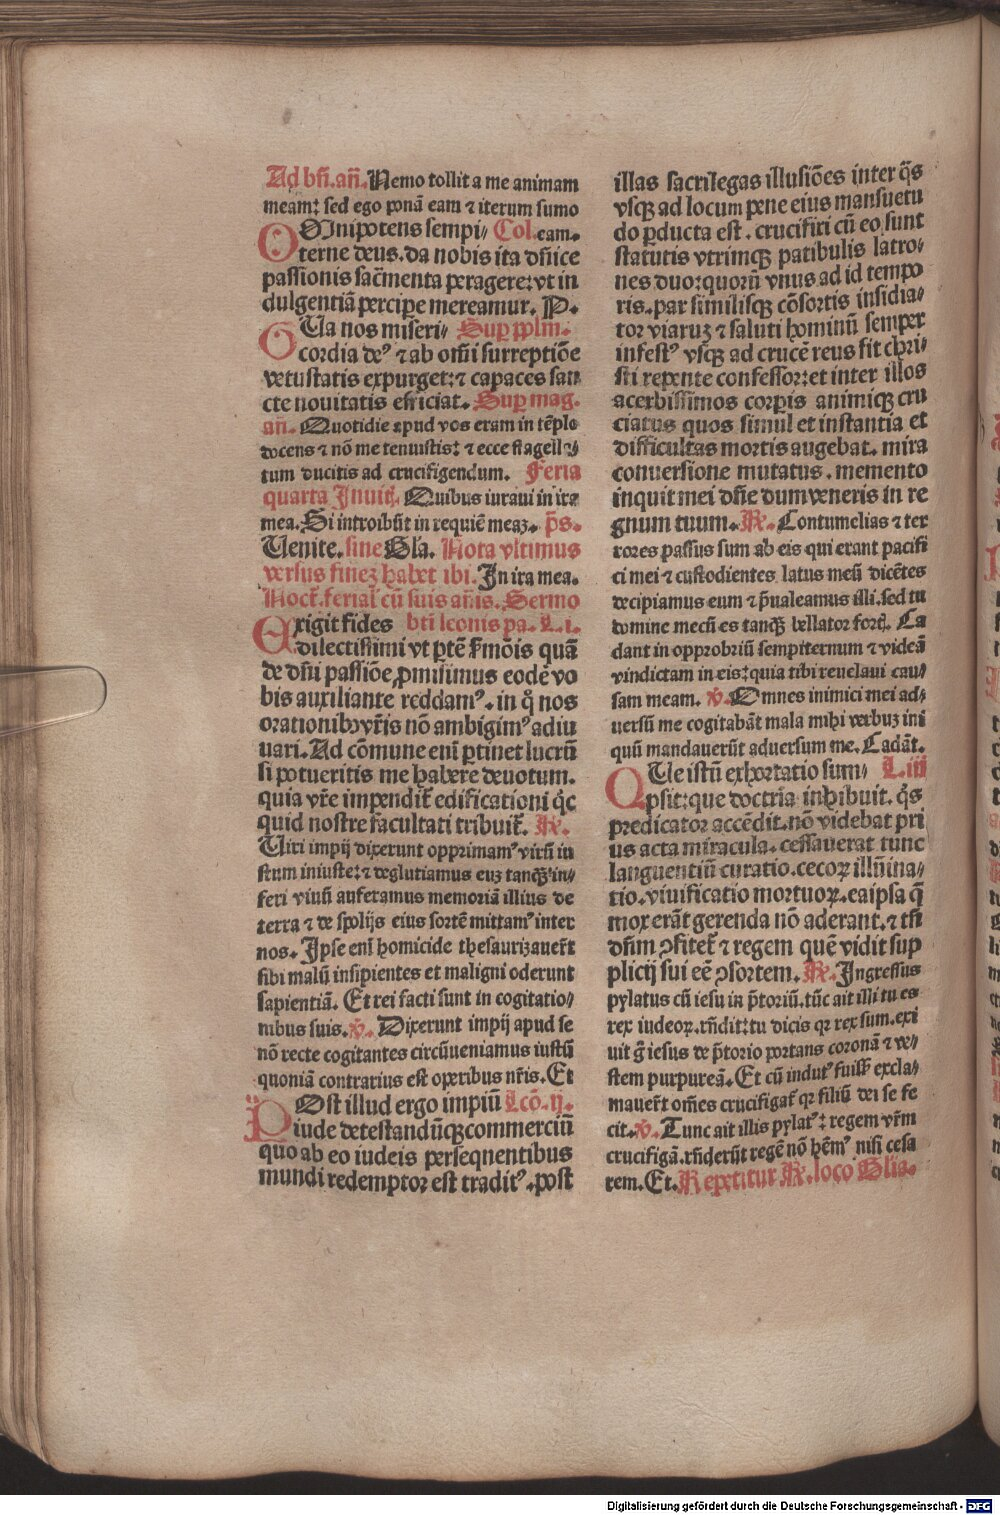 Ad bn̄. an̄. Nemo tollit a me animam
meam: sed ego ponā eam ⁊ iterum sumo
OMnipotens sempi⸗ Col. eam.
terne deus. da nobis ita dn̄ice
passionis sac̄menta peragere: vt in
dulgentiā percipere mereamur. P.
TUa nos miseri⸗ Sup pplm.
cordia deꝰ ⁊ ab om̄i surreptiōe
vetustatis expurget: ⁊ capaces san
cte nouitatis efficiat. Sup mag.
an̄. Quotidie apud vos eram in tēplo
docens ⁊ nō me tenuistis: ⁊ ecce flagella⸗
tum ducitis ad crucifigendum. Feria
quarta Inuit̄. Quibus iuraui in ira
mea. Si introibūt in requiē meaꝫ. ps̄.
Uenite. sine Gla. Nota vltimus
versus fineꝫ habet ibi. In ira mea.
Noct̄. ferial̄ cū suis an̄is. Sermo
Exigit fides bti leonis pa. L. i.
dilectissimi vt ꝑtē s̄mōis quā
de dn̄i passiōe ꝓmisimus eodē vo
bis auxiliante reddamꝰ. in q̊ nos
orationibꝰ vr̄is nō ambigimꝰ adiu
uari. Ad cōmune enī ꝑtinet lucrū
si potueritis me habere deuotum.
quia vr̄e impendit̄ edificationi q̇c
quid nostre facultati tribuit̄. R̄.
Uiri impij dixerunt opprimamꝰ virū iu
stum iniuste: ⁊ deglutiamus euꝫ tanq̄ꝫ in⸗
feri viuū auferamus memoriā illius de
terra ⁊ de spolijs eius sortē mittamꝰ inter
nos. Ipse enī homicide thesaurizauer̄t
sibi malū insipientes et maligni oderunt
sapientiā. Et rei facti sunt in cogitatio⸗
nibus suis. v̄. Dixerunt impij apud se
nō recte cogitantes circūueniamus iustū
quoniā contrarius est operibus nr̄is. Et
POst illud ergo impiū Lcō. ij.
iude detestandūqꝫ commerciū
quo ab eo iudeis persequentibus
mundi redemptor est traditꝰ. post
illas sacrilegas illusiōes inter q̄s
vsqꝫ ad locum pene eius mansuetu
do ꝑducta est. crucifixi cū eo sunt
statutis vtrimqꝫ patibulis latro⸗
nes duo: quorū vnus ad id tempo
ris. par similisqꝫ cōsortis insidia⸗
tor viaruꝫ ⁊ saluti hominū semper
infestꝰ vsqꝫ ad crucē reus fit chri⸗
sti repente confessor: et inter illos
acerbissimos corꝑis animiqꝫ cru
ciatus quos simul et instantia et
difficultas mortis augebat. mira
conuersione mutatus. memento
inquit mei dn̄e dum veneris in re
gnum tuum. R̄. Contumelias ⁊ ter
rores passus sum ab eis qui erant pacifi
ci mei ⁊ custodientes latus meū dicētes
decipiamus eum ⁊ p̄ualeamus illi. sed tu
domine mecū es tanqꝫ bellator fort̄. Ca
dant in opprobriū sempiternum ⁊ videā
vindictam in eis: quia tibi reuelaui cau⸗
sam meam. v̄. Omnes inimici mei ad⸗
uersū me cogitabāt mala mihi verbuꝫ ini
quū mandauerūt aduersum me. Cadāt.
QUe istū exhortatio sum⸗ L. iij
psit: que doctr̄ia inhibuit. q̇s
predicator accēdit. nō videbat pri
us acta miracula. cessauerat tunc
languentiū curatio. cecoꝝ illūina⸗
tio. viuificatio mortuoꝝ. ea ipsa q̄
mox erāt gerenda nō aderant. ⁊ tn̄
dn̄m ꝯfitet̄ ⁊ regem quē vidit sup
plicij sui eē ꝯsortem. R̄. Ingressus
pylatus cū iesu in p̄toriū. tūc ait illi tu es
rex iudeoꝝ. rn̄dit: tu dicis qꝛ rex sum. exi
uit g̊ iesus de p̄torio portans coronā ⁊ ve⸗
stem purpureā. Et cū indutꝰ fuiss̄ excla⸗
mauer̄t om̄es crucifigat̄ qꝛ filiū dei se fe
cit. v̄. Tunc ait illis pylatꝰ: regem vr̄m
crucifigā. rn̄derūt regē nō hēmꝰ nisi cesa
rem. Et. Repetitur R̄. loco Glia.
Digitalisierung gefördert durch die Deutsche Forschungsgemeinschaft - DFG